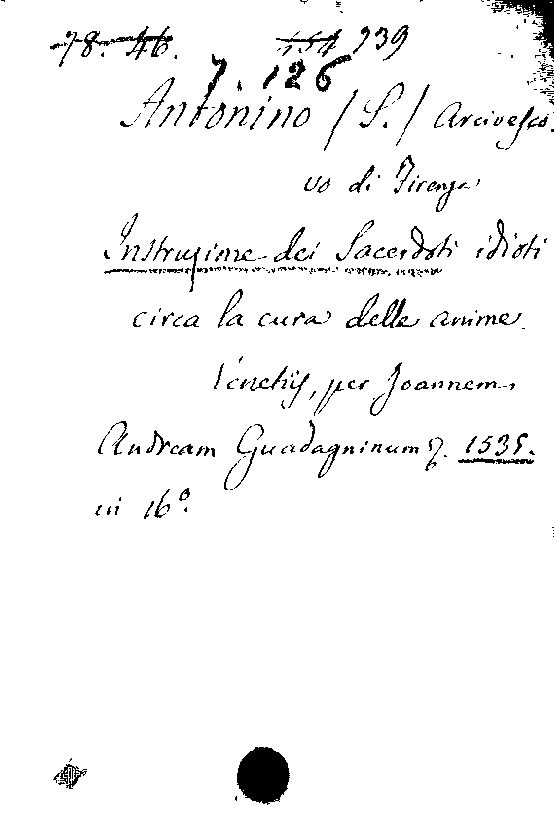 78. 46. 154 939
7. 126
Antonino /S./ Arcivesco
vo di Firenze
Instruzione dei Sacerdoti idioti
circa la cura delle anime.
Venetijs, per Joannem
Andream Guadagninum 1535.
in 16º.